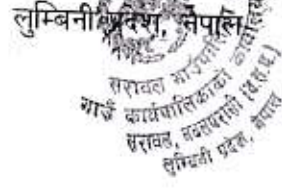 लुम्बिनी प्रदेश, नेपाल
सरावल गाउँपालिका
गाउँ कार्यपालिकाको कार्यालय
सरावल, नवलपरासी (ब.सु.प.)
लुम्बिनी प्रदेश, नेपाल